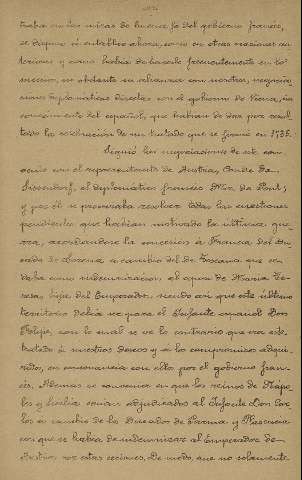 traba en las miras de buena fe del gobierno francés,
se dispuso á entablar ahora, como en otras ocasiones an
teriores y como había de hacerlo frecuentemente en lo
sucesivo, no obstante su alianza con nosotros, negocia
ciones diplomáticas directas con el gobierno de Viena, sin
conocimiento del español, que habían de dar por resul
tado la celebración de un tratado que se firmó en 1735.
Siguió las negociaciones de este con
venio con el representante de Austria, Conde de
el diplomático francés Mr. de
y por él se procuraba resolver todas las cuestiones
pendientes que habían motivado la última gue
rra, acordándose la concesión á Francia del du
cado de Lorena á cambio del de Toscana, que se
daba como indemnización al esposo de María Te
resa, hija del Emperador, siendo así que este último
territorio debía ser para el Infante español Don
Felipe, con lo cual se ve lo contrario que era este
tratado á nuestros deseos y á los compromisos adqui
ridos, en consonancia con ellos por el gobierno fran
cés. Además se convenía en que los reinos de Nápo
les y Sicilia serían adjudicados al Infante Don Car
los á cambio de los Ducados de Parma y Plasencia
con que se había de indemnizar al Emperador de
Austria por estas cesiones. De modo, que no solamente